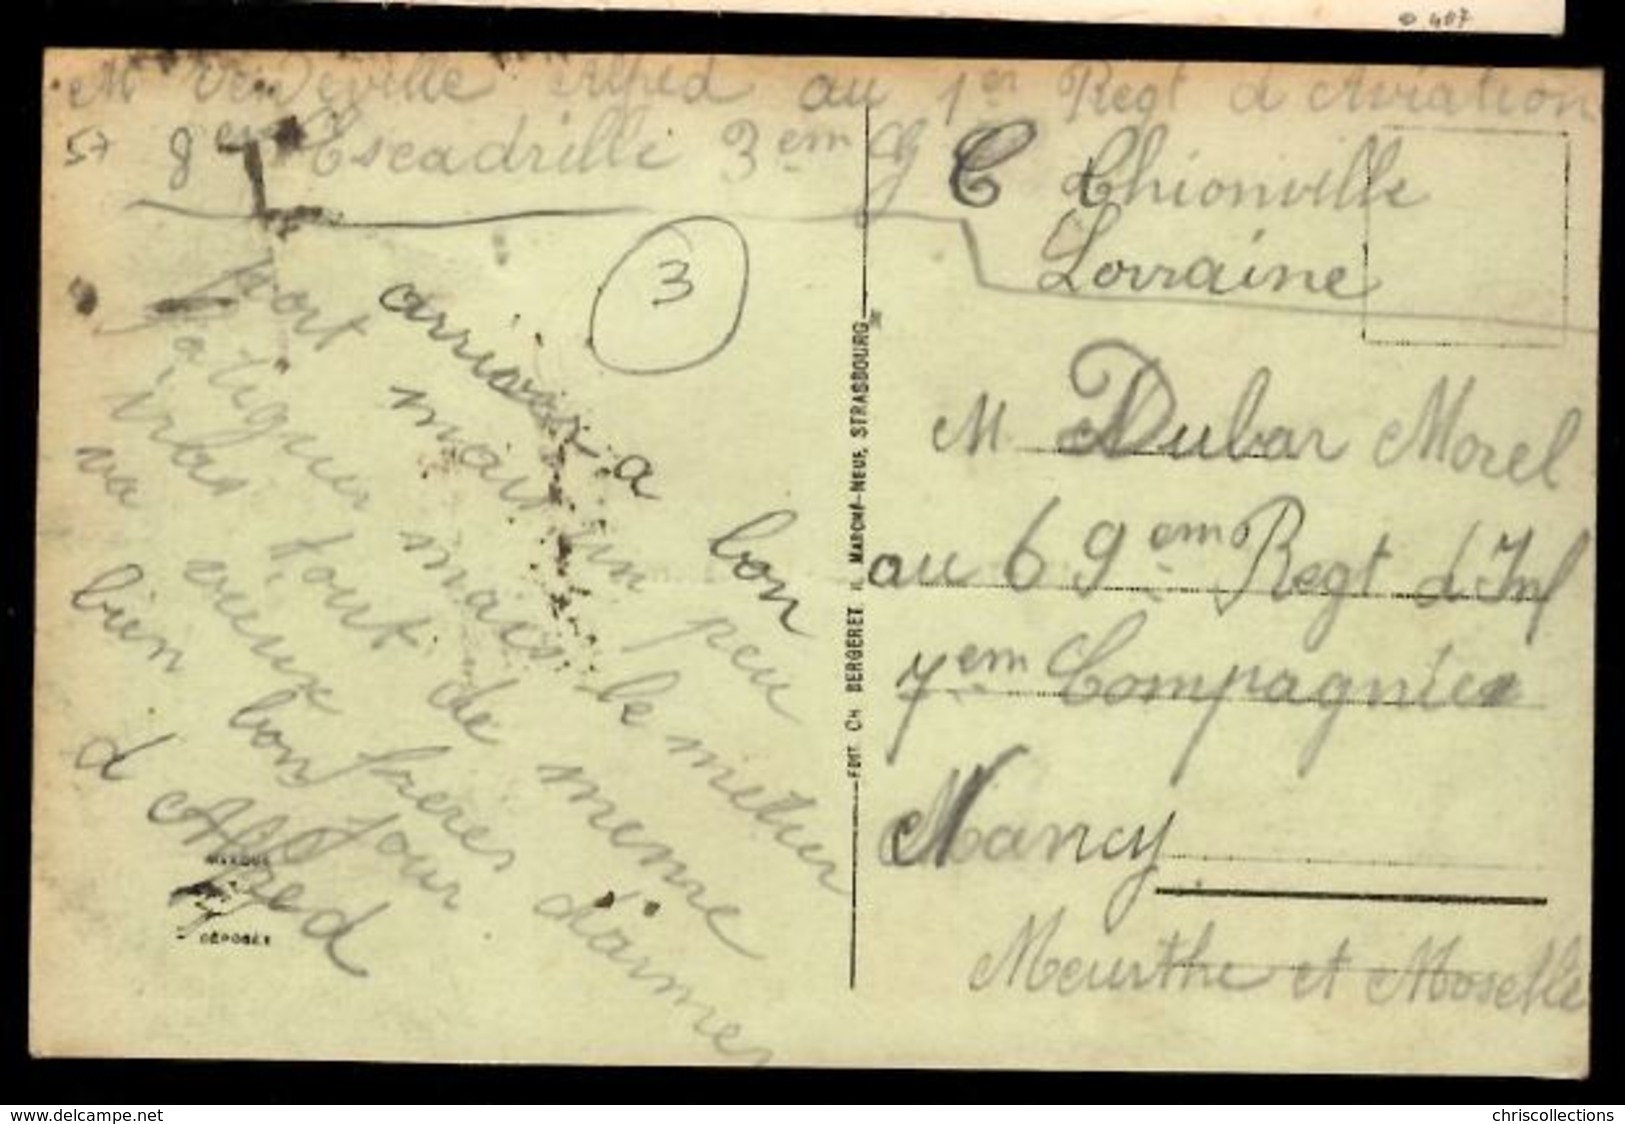 407
M Vandeville Alfred au 1er Regt d Aviation
57 8em Escadrille 3em G C Thionville
Lorraine
3
arriver a bon
port mais un peu
fatiguer mais le metier
va vieux frères d'armes
bien bon jour
d Alfred
très tout de meme
M Dubar Morel
au 69eme Regt d'Inf
7em Compagnie
Nancy
Meurthe et Moselle
EDIT. CH BERGERET MARCHÉ-NEUF, STRASBOURG
MARQUE
DÉPOSÉE
www.delcampe.net
chriscollections